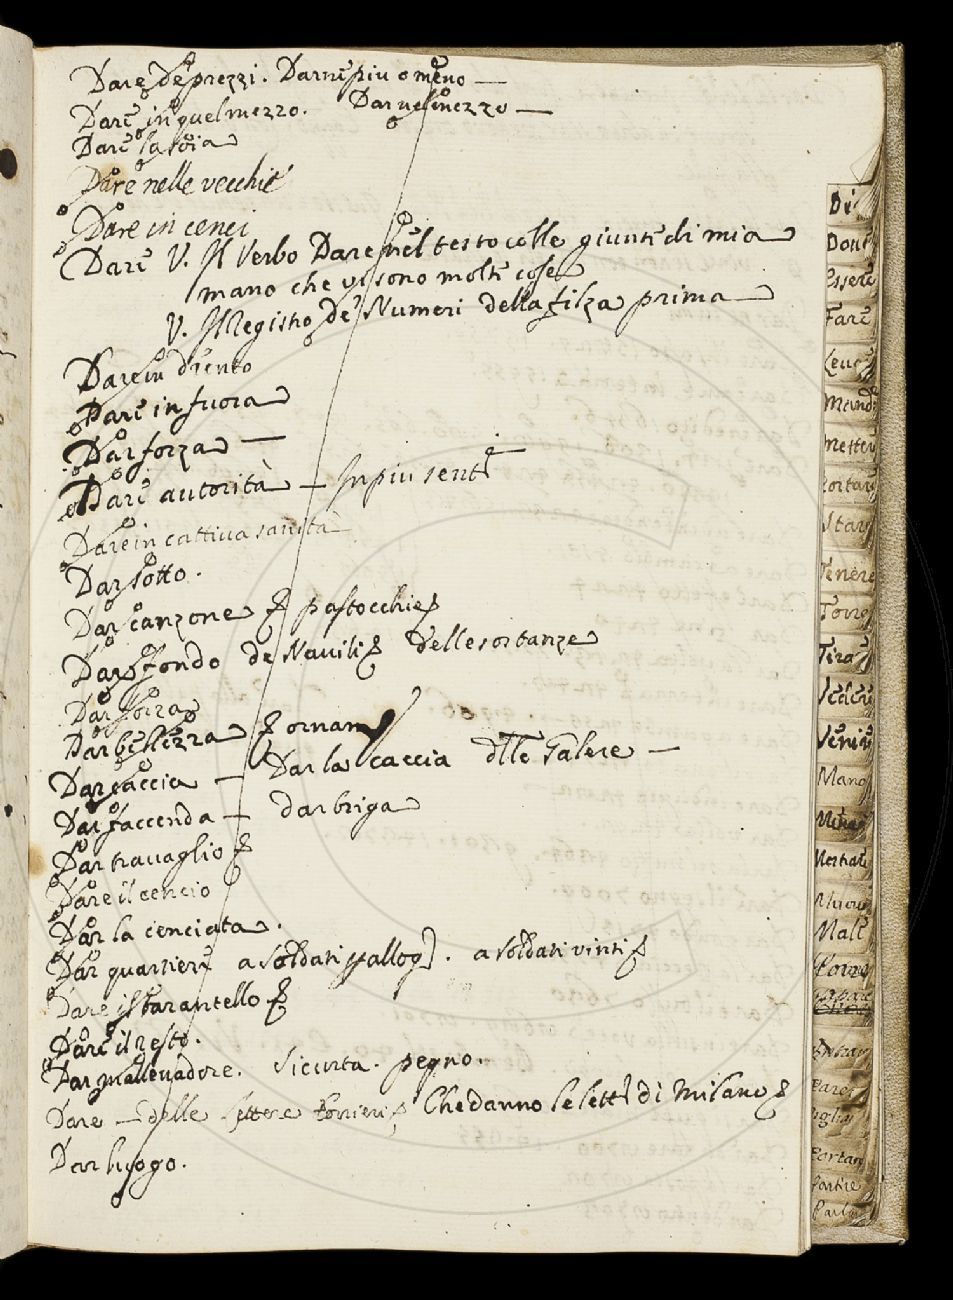 Dare de prezzi. Darne piu o meno —
Dare in quel mezzo. Dar nel mezzo —
Dare la soia
Dare nelle vecchie
Dare in cenci
Dare V. Il Verbo Dare nel testo colle giunte di mia
mano che vi sono molte cose
V. Il Registro de Numeri della filza prima
Dare in drento
Dare in fuora
Dar forza —
Dare autorità — In piu senti
Dare in cattiva sanità
Dar sotto.
Dar canzone pastocchie
Dar fondo de Navili delle sostanze
Dar forza
Dar bellezza ornam
Dar caccia — Dar la caccia dlle Galere —
Dar faccenda — dar briga
Dar travaglio
Dare il cencio
Dar la cenciata.
Dar quartiere a soldati p allog. a soldati vinti
Dare il tarantello
Dare il resto.
Dar mallevadore. Sicurta. pegno.
Dare — delle lettere Che danno le lett di Milano
Dar luogo.
Di
Dou
Essere
Fare
Leu
Mand
Metter
ortar
Star
Tenere
Torre
Tira
Vedere
Venir
Mano
Mostrar
Male
Partire